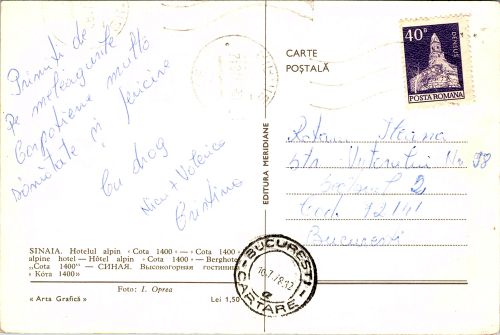 Primiți de
pe meleagurile
Carpatiene multă
Sănătate și fericire
Cu drag
Nicu + Valerica
Cristina
SINAIA. Hotelul alpin « Cota 1400 » — « Cota 1400 »
alpine hotel — Hôtel alpin « Cota 1400 » — Berghotel
„Cota 1400" — СИНАЯ. Высокогорная гостиница
« Кóта 1400»
Foto: I. Oprea
« Arta Grafică »
Lei 1,50
EDITURA MERIDIANE
CARTE
POȘTALĂ
40B
DENSUȘ
POSTA ROMANA
Ileana
str. Nr 98
Sectorul 2
Cod 72141
București
BUCUREȘTI
16.7.78.12
a
CARTARE